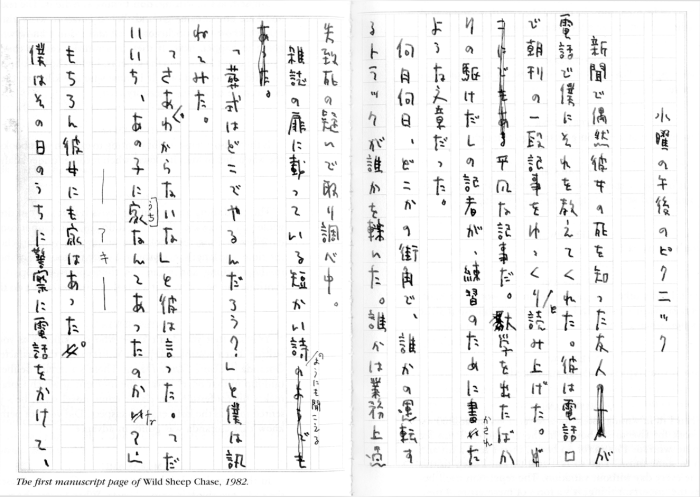 水曜の午後のピクニック
新聞で偶然彼女の死を知った友人が
電話で僕にそれを教えてくれた。彼は電話口
で朝刊の一段記事をゆっくりと読み上げた。
平凡な記事だ。大学を出たばか
りの駆けだしの記者が、練習のために書かされた
ような文章だった。
何月何日、どこかの街角で、誰かの運転す
るトラックが誰かを轢いた。誰かは業務上過
失致死の疑いで取り調べ中。
雑誌の扉に載っている短かい詩のようにも聞こえる
「葬式はどこでやるんだろう？」と僕は訊
ねてみた。
「さあ、わからないな」と彼は言った。「だ
いいち、あの子に家（うち）なんてあったのか
―アキ―
もちろん彼女にも家はあった。
僕はその日のうちに警察に電話をかけて、
The first manuscript page of Wild Sheep Chase, 1982.